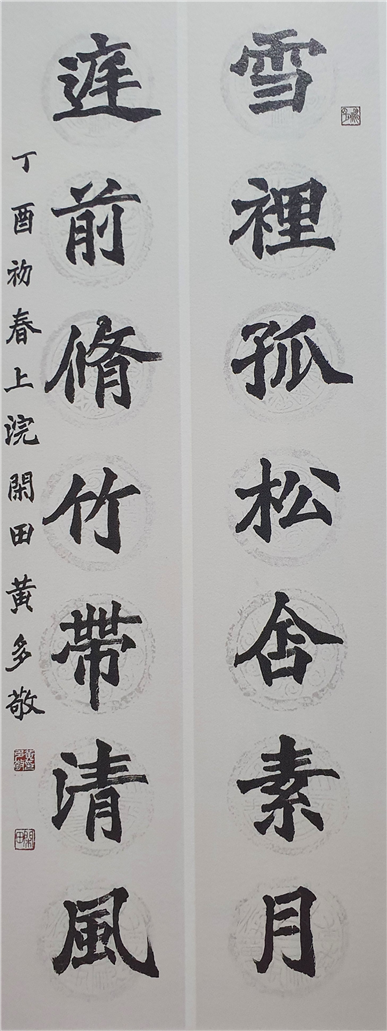 雪裡孤松含素月
庭前脩竹帶清風
丁酉初春上浣閑田黃多敬